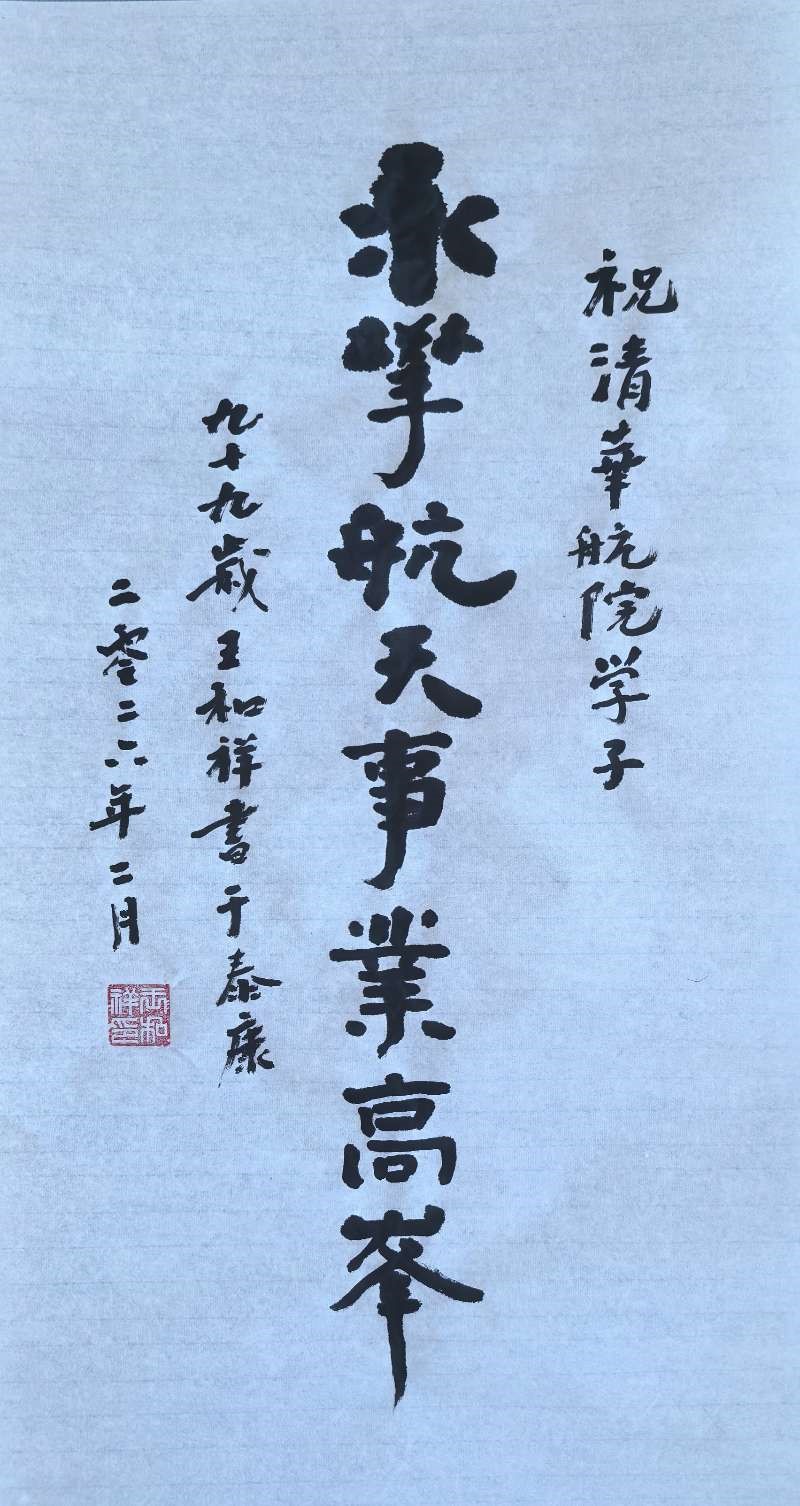 祝清華航院学子
永攀航天事業高峯
九十九歲王和祥書于泰康
二零二六年二月
王和祥印